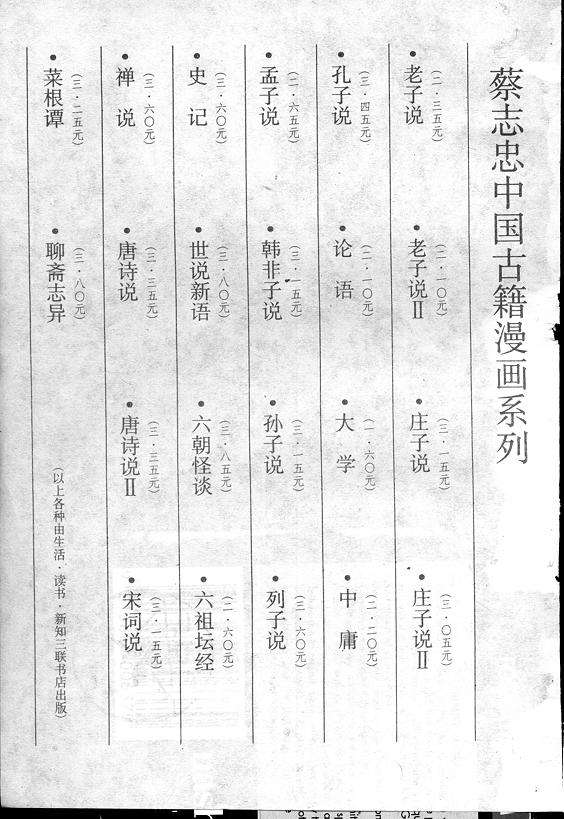 蔡志忠中国古籍漫画系列
•老子说（二·三五元）
•老子说Ⅱ（二·一〇元）
•庄子说（三·一五元）
•庄子说Ⅱ（三·〇五元）
•孔子说（三·四五元）
•论语（二·一〇元）
•大学（一·六〇元）
•中庸（二·二〇元）
•孟子说（二·六五元）
•韩非子说（三·一五元）
•孙子说（三·一五元）
•列子说（三·六〇元）
•史记（三·六〇元）
•世说新语（三·八〇元）
•六朝怪谈（三·八五元）
•六祖坛经（二·六〇元）
•禅说（二·六〇元）
•唐诗说（三·三五元）
•唐诗说Ⅱ（三·三五元）
•宋词说（三·一五元）
•菜根谭（三·二五元）
•聊斋志异（三·八〇元）
（以上各种由生活·读书·新知三联书店出版）